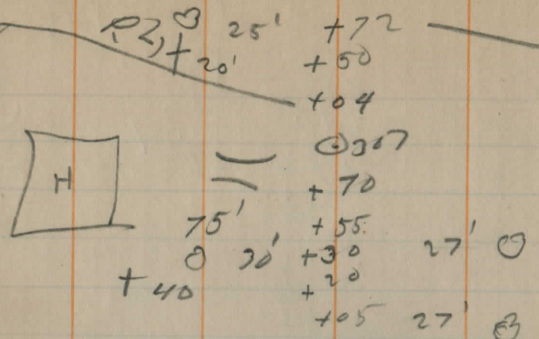 25' +72
+20' +50
+04
⊙307
H
+70
75' +55
30' +30 27'
+40 +20
+05 27'